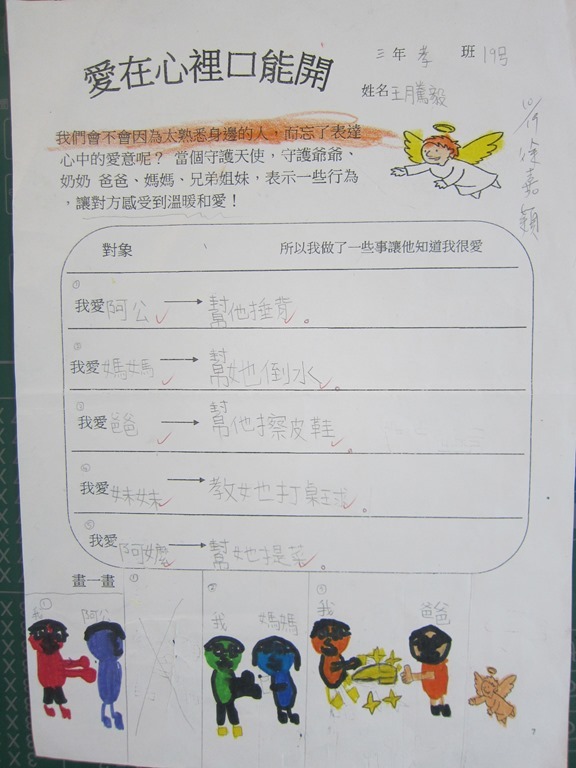 愛在心裡口能開
三年孝班19號
姓名王月騰毅
10/19 涂嘉穎
我們會不會因為太熟悉身邊的人，而忘了表達
心中的愛意呢？ 當個守護天使，守護爺爺、
奶奶 爸爸、媽媽、兄弟姐妹，表示一些行為
，讓對方感受到溫暖和愛！
對象 所以我做了一些事讓他知道我很愛
① 我愛阿公 → 幫他捶背。
② 我愛媽媽 → 幫她倒水。
③ 我愛爸爸 → 幫他擦皮鞋。
④ 我愛妹妹 → 教她打桌球。
⑤ 我愛阿嬤 → 幫她提菜。
畫一畫
① 我 阿公
② 我 媽媽
③ 我 爸爸